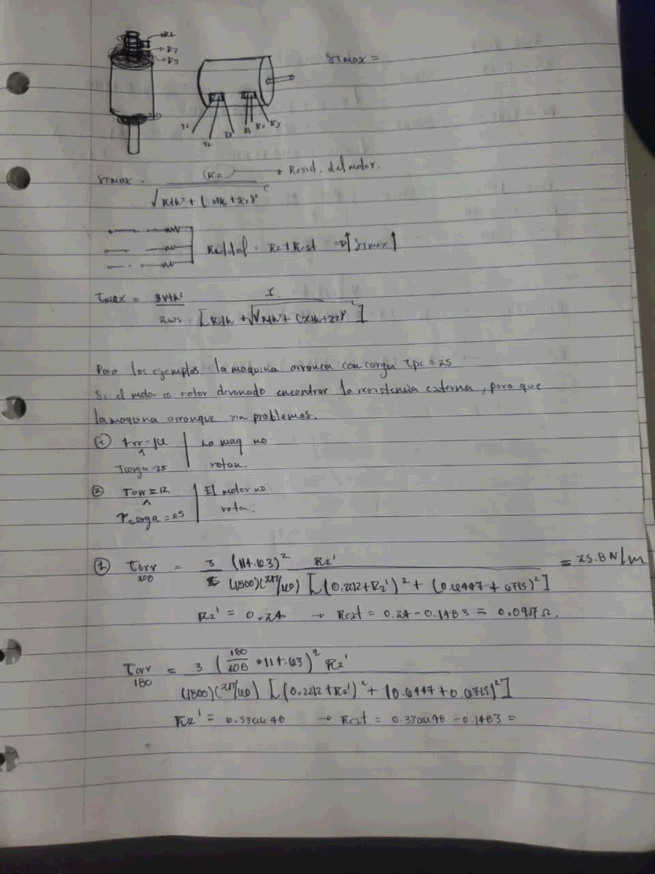 R1
R2
R3
Stmax =
T1 T2 T3 R1 R2 R3
STmax = R2 / √Rth² + (xth + x2)² → Resist. del motor.
Rtotal = R2 + Rext → ↑STmax↑
Tmax = 3Vth² / 2ws · 1 / [Rth + √Rth² + (xth + x2)²]
Para los ejemplos la maquina arranca con carga Tpc = 25
Si el motor es rotor devanado encontrar la resistencia externa, para que
la maquina arranque sin problemas.
① Tarr = 14 | La maq no
^
Tcarga = 25 | rotara.
② Tarr = 12 | El motor no
^
Tcarga = 25 | rota.
① Tarr 208 = 3 (114.63)² R2' / (1800)(2π/60) [(0.2212 + R2')² + (0.6447 + 0.6715)²] = 25.8 N/m
R2' = 0.24 → Rext = 0.24 - 0.1483 = 0.0917 Ω.
Tarr 180 = 3 (180/208 * 114.63)² R2' / (1800)(2π/60) [(0.2212 + R2')² + (0.6447 + 0.6715)²]
R2' = → Rext = - 0.1483 =